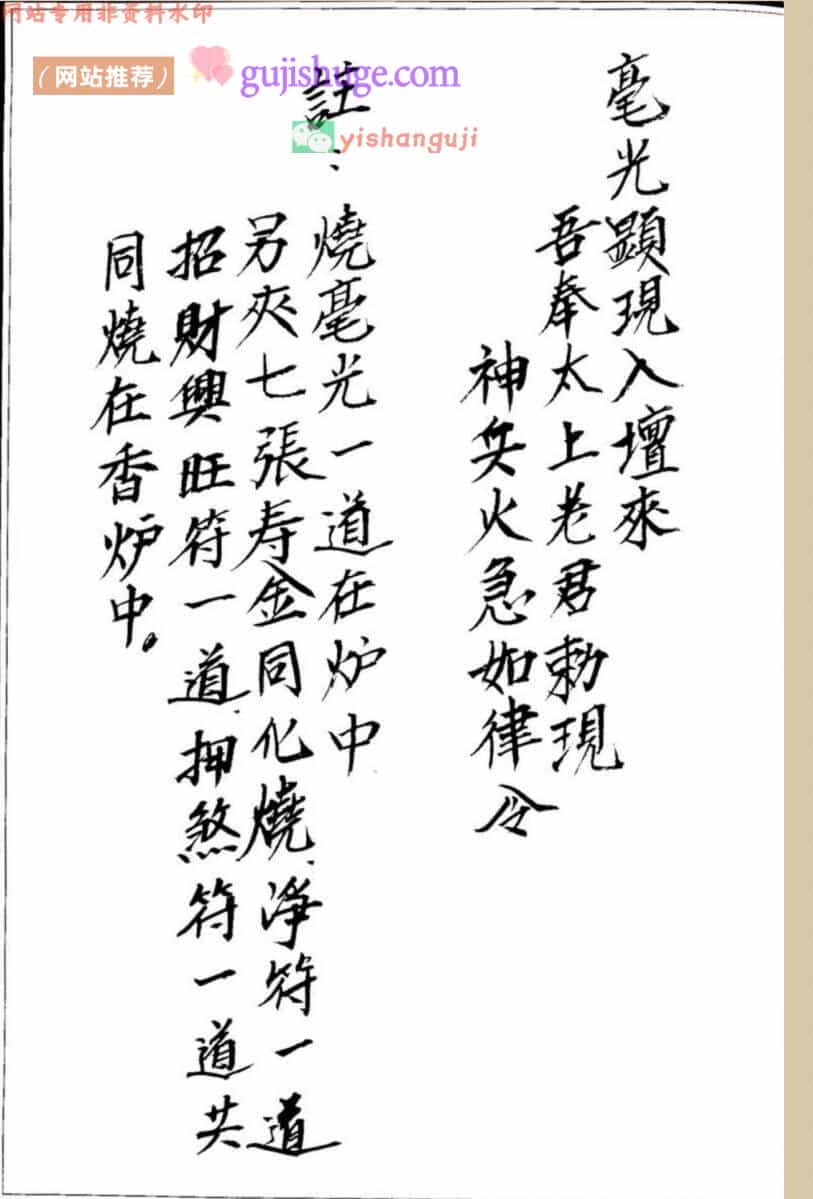 网站专用非资料水印
（网站推荐）
gujishuge.com
yishanguji
毫光顯現入壇來
吾奉太上老君勅現
神兵火急如律令
註：
燒毫光一道在炉中
另夾七張寿金同化燒、淨符一道
招財興旺符一道、押煞符一道共
同燒在香炉中。